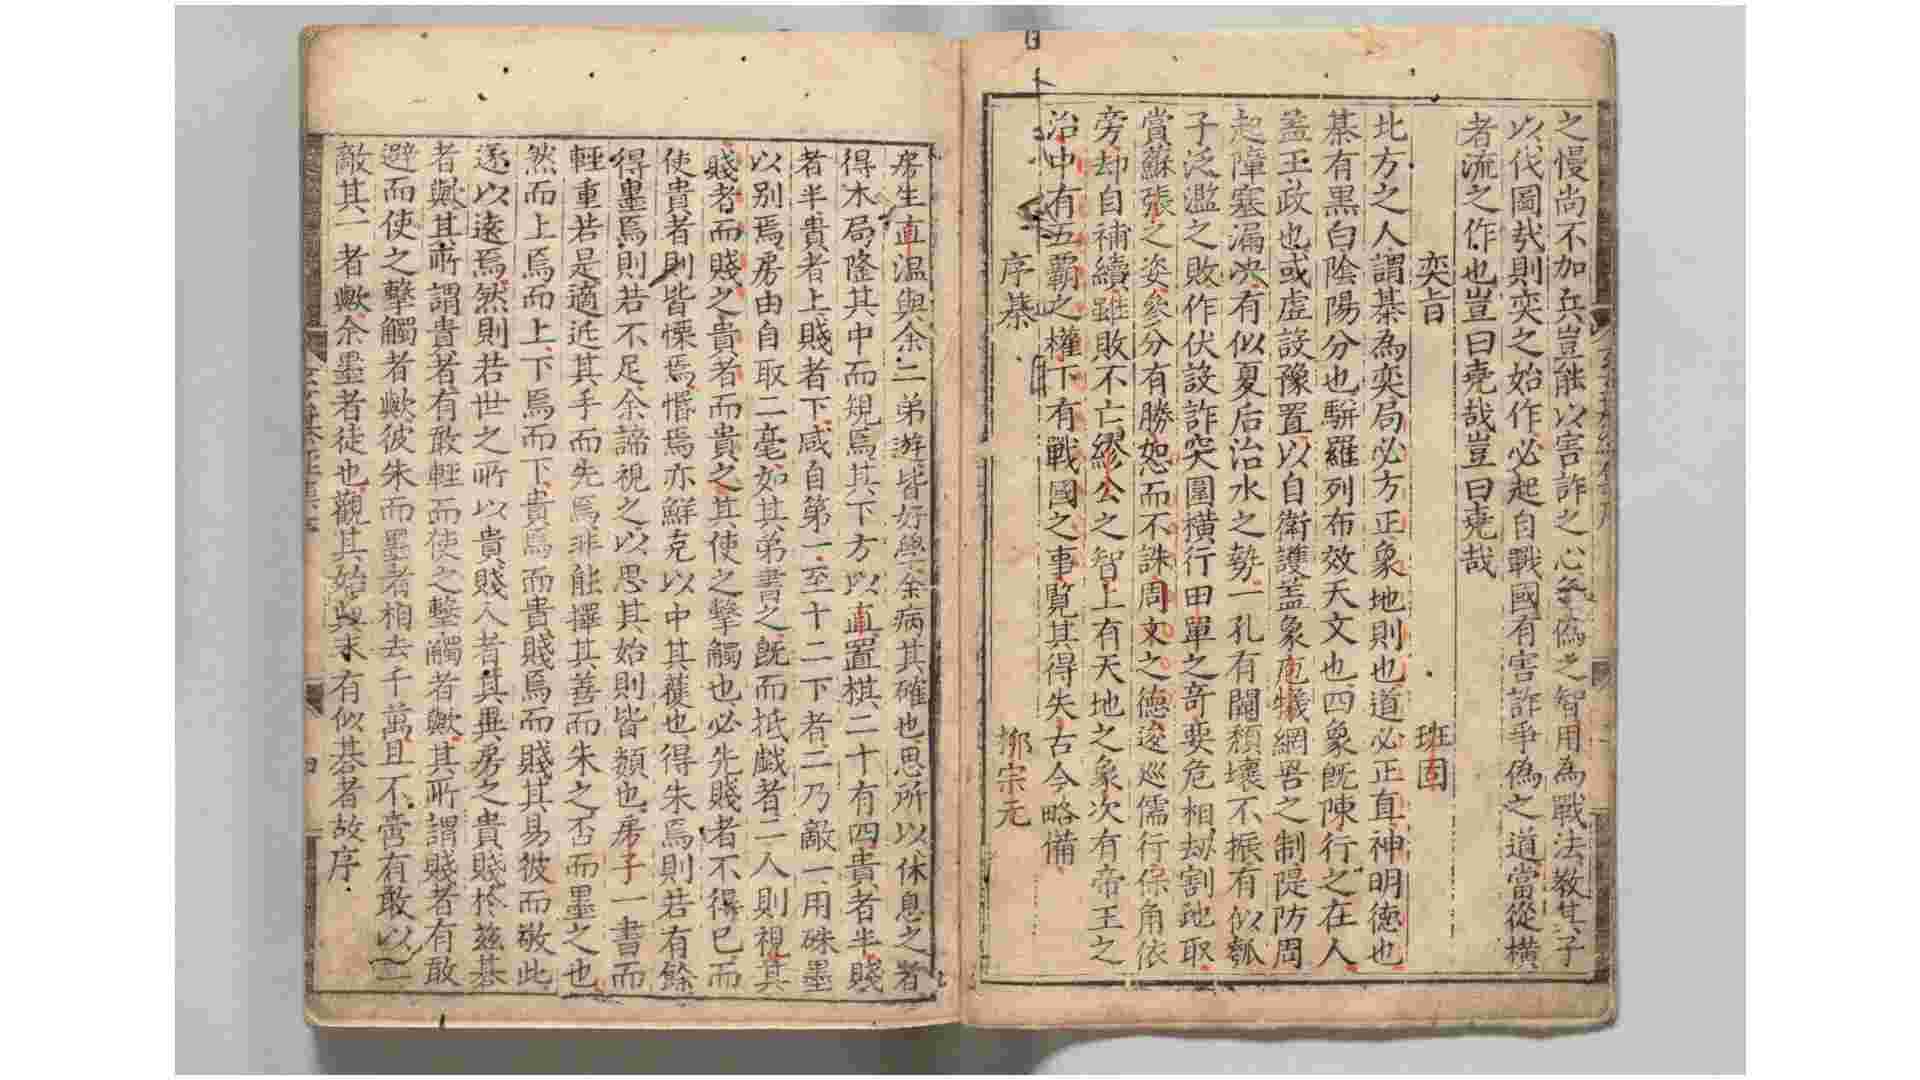 之慢尚不加兵豈能以害詐之心爭偽之智用為戰法教其子
以伐圖㢤則奕之始作必起自戰國有害詐爭偽之道當從橫
者流之作也豈曰堯哉豈曰堯哉
奕旨 班固
北方之人謂棊為奕局必方正象地則也道必正直神明德也
棊有黑白陰陽分也騈羅列布效天文也四象既陳行之在人
蓋王政也或虛設豫置以自衛護蓋象庖犧網罟之制隄防周
起障塞漏决有似夏后治水之勢一孔有闕頹壞不振有似瓠
子泛濫之敗作伏設詐突圍橫行田單之奇要危相刼割地取
賞蘇張之姿參分有勝恕而不誅周文之德逡巡儒行保角依
旁却自補續雖敗不亡繆公之智上有天地之象次有帝王之
治中有五霸之權下有戰國之事覧其得失古今略備
序棊 柳宗元
房生直温與余二弟遊皆好學余病其確也思所以休息之者
得木局隆其中而規焉其下方以直置棋二十有四貴者半賤
者半貴者上賤者下咸自第一至十二下者二乃敵一用硃墨
以别焉房由自取二毫如其弟書之既而抵戯者二人則視其
賤者而賤之貴者而貴之其使之擊觸也必先賤者不得已而
使貴者則皆慄焉惛焉亦鮮克以中其獲也得朱焉則若有餘
得墨焉則若不足余諦視之以思其始則皆類也房子一書而
輕重若是適近其手而先焉非能擇其善而朱之否而墨之也
然而上焉而上下焉而下貴焉而貴賤焉而賤其易彼而敬此
遂以遠焉然則若世之所以貴賤人者其異房之貴賤於兹棊
者歟其所謂貴者有敢輕而使之擊觸者歟其所謂賤者有敢
避而使之擊觸者歟彼朱而墨者相去千萬且不啻有敢以二
敵其一者歟余墨者徒也觀其始與末有似棊者故序